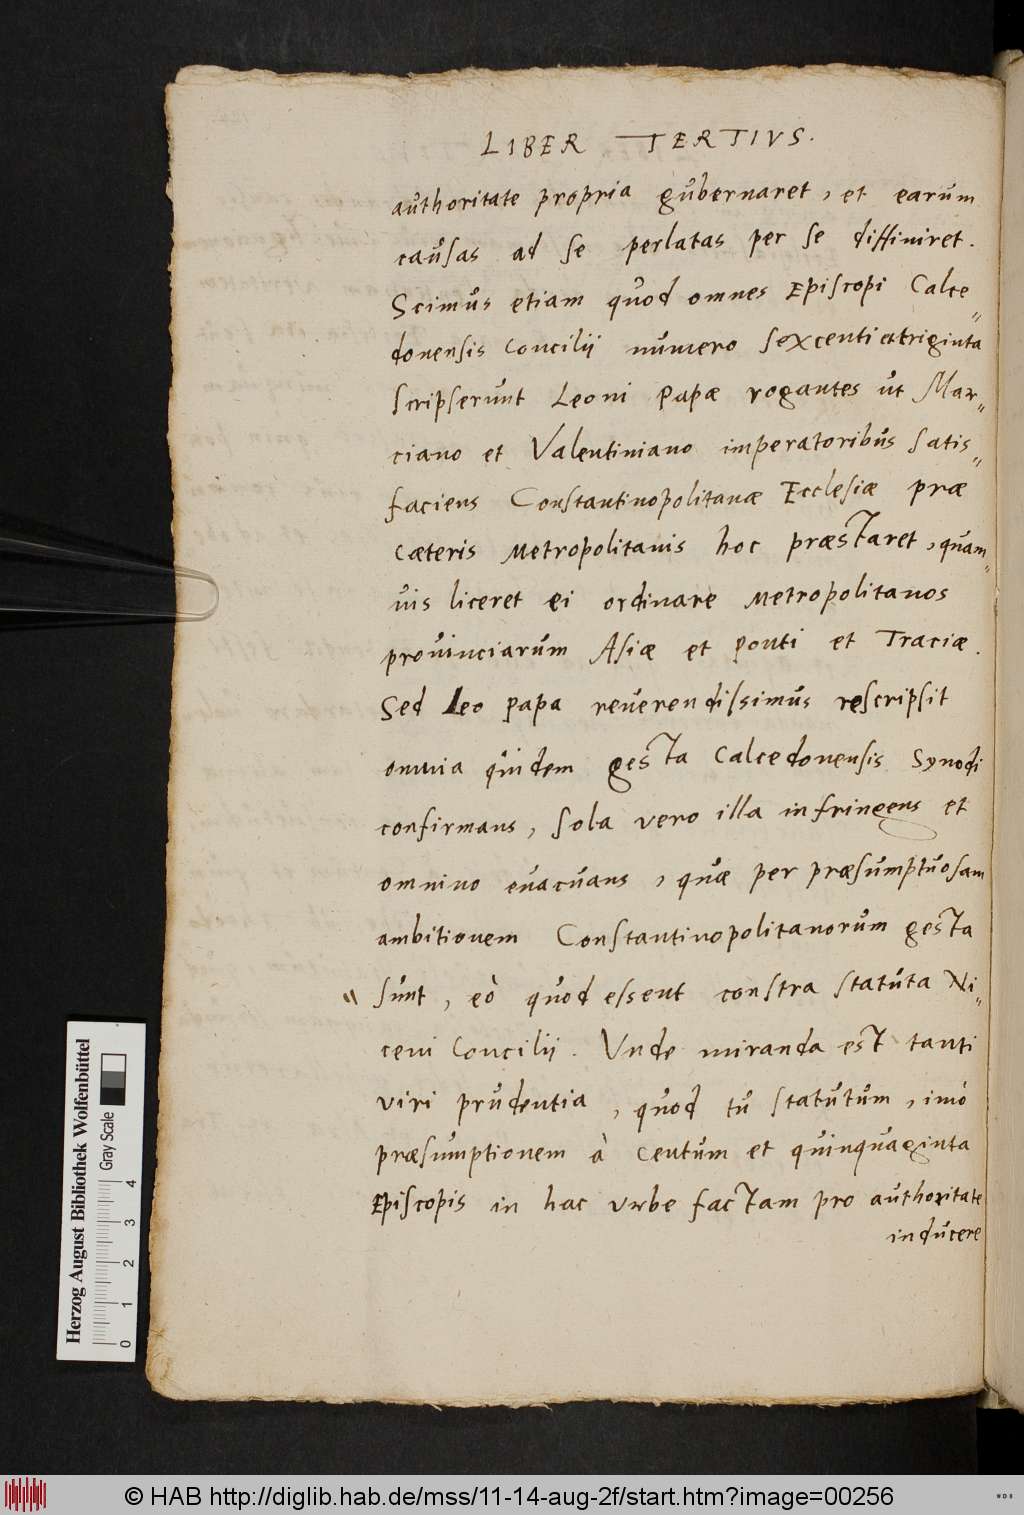 LIBER TERTIVS.
authoritate propria gubernaret, et earum
causas ad se perlatas per se diffiniret.
Scimus etiam quod omnes Episcopi Calce=
donensis Concilii numero sexcenti et triginta
scripserunt Leoni Papæ rogantes ut Mar=
ciano et Valentiniano imperatoribus satis=
faciens Constantinopolitanæ Ecclesiæ præ
cæteris Metropolitanis hoc præstaret, quam=
uis liceret ei ordinare Metropolitanos
prouinciarum Asiæ et Ponti et Traciæ.
Sed Leo Papa reuerendissimus rescripsit
omnia quidem gesta Calcedonensis Synodi
confirmans, sola vero illa infringens et
omnino euacuans, quæ per præsumptuosam
ambitionem Constantinopolitanorum gesta
" sunt, eò quod essent constra statuta Ni=
ceni Concilii. Vnde miranda est tanti
viri prudentia, quod tu statutum, imò
præsumptionem à centum et quinquaginta
Episcopis in hac vrbe factam pro authoritate
inducere
Herzog August Bibliothek Wolfenbüttel
Gray Scale
0 1 2 3 4
© HAB http://diglib.hab.de/mss/11-14-aug-2f/start.htm?image=00256